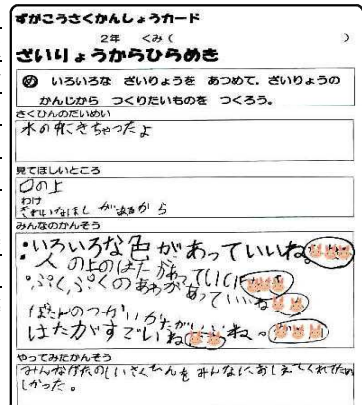 ずがこうさくかんしょうカード
2年 くみ( )
ざいりょうからひらめき
め いろいろな ざいりょうを あつめて、ざいりょうの
かんじから つくりたいものを つくろう。
さくひんのだいめい
水の中にきちゃったよ
見てほしいところ
口の上
わけ
があるから
みんなのかんそう
・いろいろな色があっていいね
・人の上のはたがあっていいね
・ぷくぷくのあわがあっていいね
ぼたんのつかいかたがいいね。
はたがすごいね
やってみたかんそう
みんながたのしいさくひんをみんなにおしえてくれてたの
しかった。